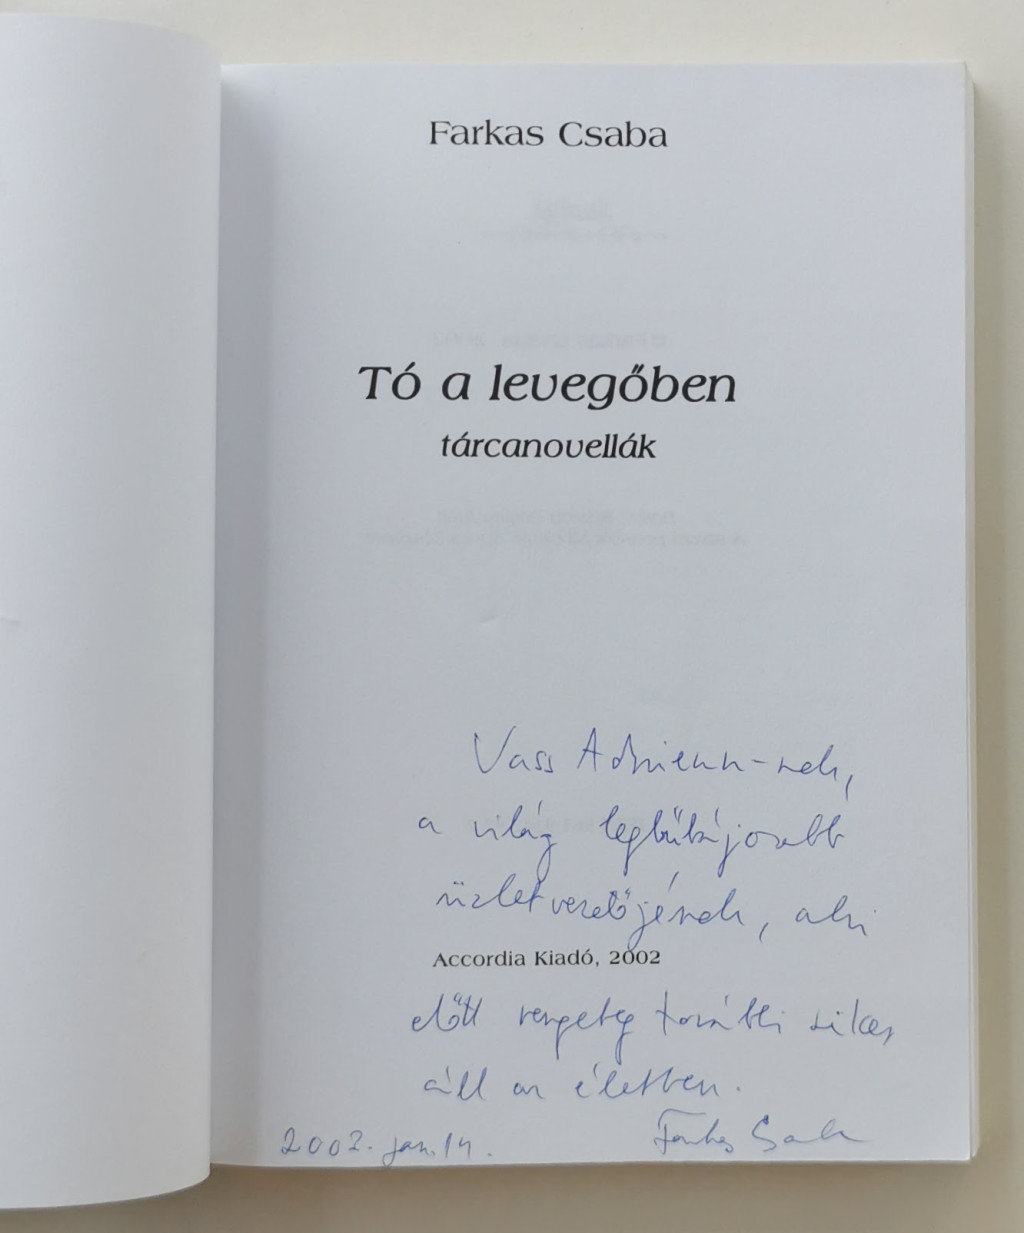 Farkas Csaba
Tó a levegőben
tárcanovellák
Vass Adrienn-nek,
a világ legbűbájosabb
üzletvezetőjének, aki
Accordia Kiadó, 2002
előtt rengeteg további siker
áll az életben.
2002. jan. 14.
Farkas Csaba